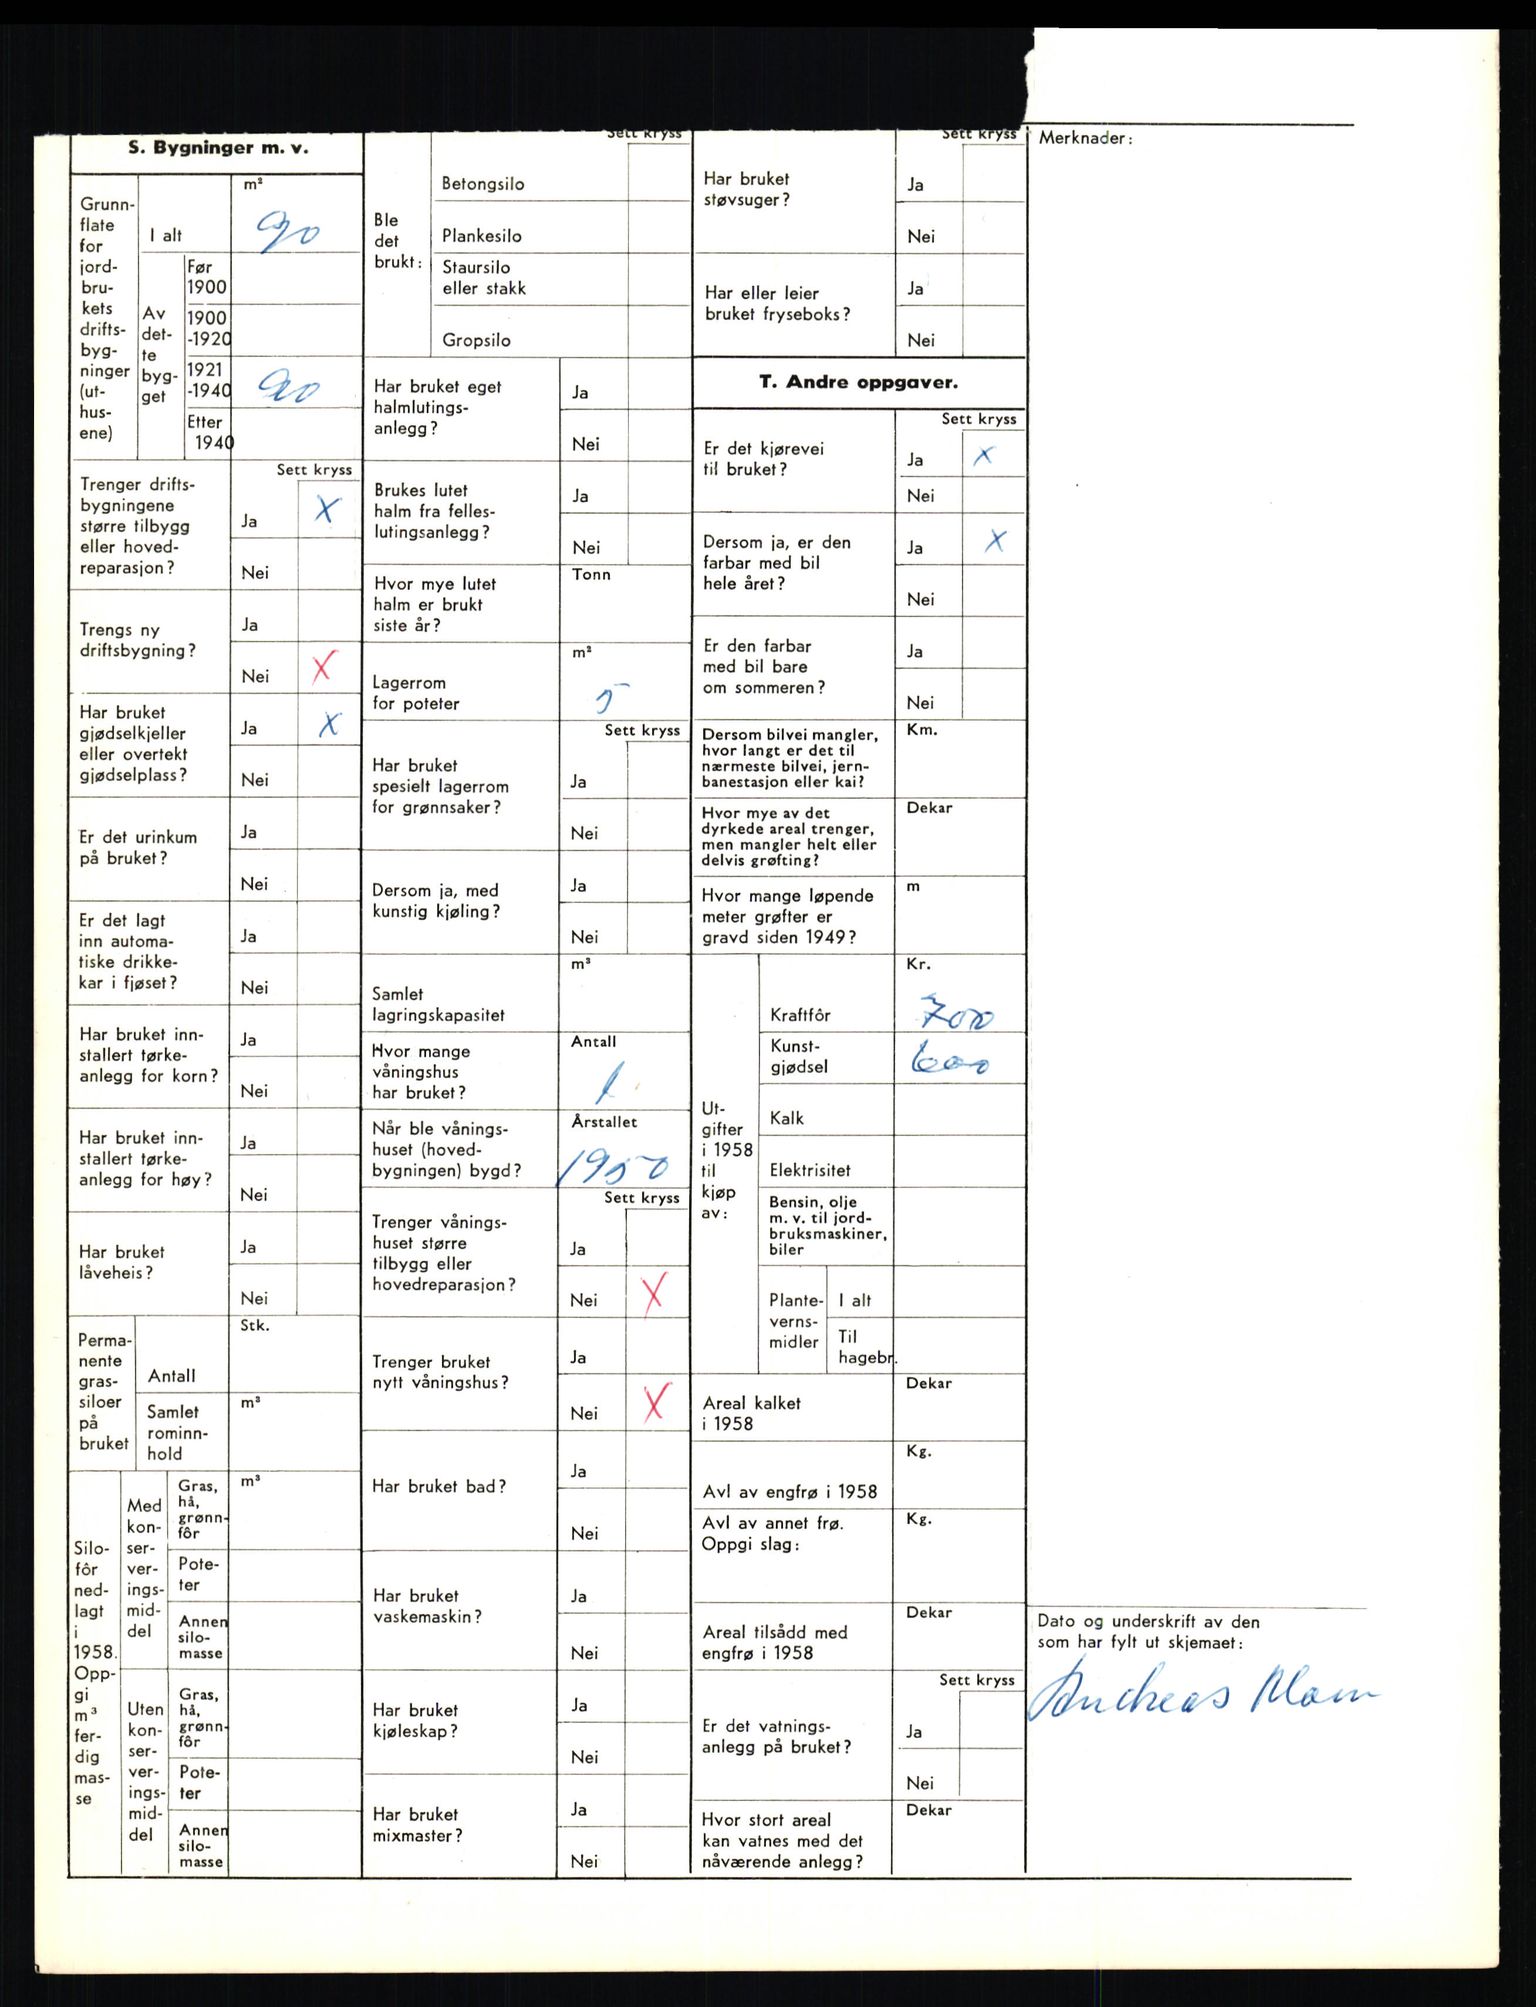 S. Bygninger m. v.
Grunn-
flate
for
jord-
bru-
kets
drifts-
byg-
ninger
(ut-
hus-
ene)
I alt
m²
90
Av
det-
te
byg-
get
Før
1900
1900
-1920
1921
-1940
90
Etter
1940
Sett kryss
Trenger drifts-
bygningene
større tilbygg
eller hoved-
reparasjon?
Ja X
Nei
Trengs ny
driftsbygning?
Ja
Nei X
Har bruket
gjødselkjeller
eller overtekt
gjødselplass?
Ja X
Nei
Er det urinkum
på bruket?
Ja
Nei
Er det lagt
inn automa-
tiske drikke-
kar i fjøset?
Ja
Nei
Har bruket inn-
stallert tørke-
anlegg for korn?
Ja
Nei
Har bruket inn-
stallert tørke-
anlegg for høy?
Ja
Nei
Har bruket
låveheis?
Ja
Nei
Perma-
nente
gras-
siloer
på
bruket
Antall
Stk.
Samlet
rominn-
hold
m³
Silo-
fôr
ned-
lagt
i
1958.
Opp-
gi
m³
fer-
dig
mas-
se
Med
kon-
ser-
ver-
ings-
mid-
del
Gras,
hå,
grønn-
fôr
m³
Pote-
ter
Annen
silo-
masse
Uten
kon-
ser-
ver-
ings-
mid-
del
Gras,
hå,
grønn-
fôr
Pote-
ter
Annen
silo-
masse
Sett kryss
Ble
det
brukt:
Betongsilo
Plankesilo
Staursilo
eller stakk
Gropsilo
Har bruket eget
halmlutings-
anlegg?
Ja
Nei
Brukes lutet
halm fra felles-
lutingsanlegg?
Ja
Nei
Hvor mye lutet
halm er brukt
siste år?
Tonn
Lagerrom
for poteter
m²
5
Sett kryss
Har bruket
spesielt lagerrom
for grønnsaker?
Ja
Nei
Dersom ja, med
kunstig kjøling?
Ja
Nei
Samlet
lagringskapasitet
m³
Hvor mange
våningshus
har bruket?
Antall
1
Når ble vånings-
huset (hoved-
bygningen) bygd?
Årstallet
1950
Sett kryss
Trenger vånings-
huset større
tilbygg eller
hovedreparasjon?
Ja
Nei X
Trenger bruket
nytt våningshus?
Ja
Nei X
Har bruket bad?
Ja
Nei
Har bruket
vaskemaskin?
Ja
Nei
Har bruket
kjøleskap?
Ja
Nei
Har bruket
mixmaster?
Ja
Nei
Sett kryss
Har bruket
støvsuger?
Ja
Nei
Har eller leier
bruket fryseboks?
Ja
Nei
T. Andre oppgaver.
Sett kryss
Er det kjørevei
til bruket?
Ja X
Nei
Dersom ja, er den
farbar med bil
hele året?
Ja X
Nei
Er den farbar
med bil bare
om sommeren?
Ja
Nei
Dersom bilvei mangler,
hvor langt er det til
nærmeste bilvei, jern-
banestasjon eller kai?
Km.
Hvor mye av det
dyrkede areal trenger,
men mangler helt eller
delvis grøfting?
Dekar
Hvor mange løpende
meter grøfter er
gravd siden 1949?
m
Ut-
gifter
i 1958
til
kjøp
av:
Kr.
Kraftfôr
700
Kunst-
gjødsel
600
Kalk
Elektrisitet
Bensin, olje
m. v. til jord-
bruksmaskiner,
biler
Plante-
verns-
midler
I alt
Til
hagebr.
Areal kalket
i 1958
Dekar
Avl av engfrø i 1958
Kg.
Avl av annet frø.
Oppgi slag:
Kg.
Areal tilsådd med
engfrø i 1958
Dekar
Sett kryss
Er det vatnings-
anlegg på bruket?
Ja
Nei
Hvor stort areal
kan vatnes med det
nåværende anlegg?
Dekar
Merknader:
Dato og underskrift av den
som har fylt ut skjemaet:
Andreas